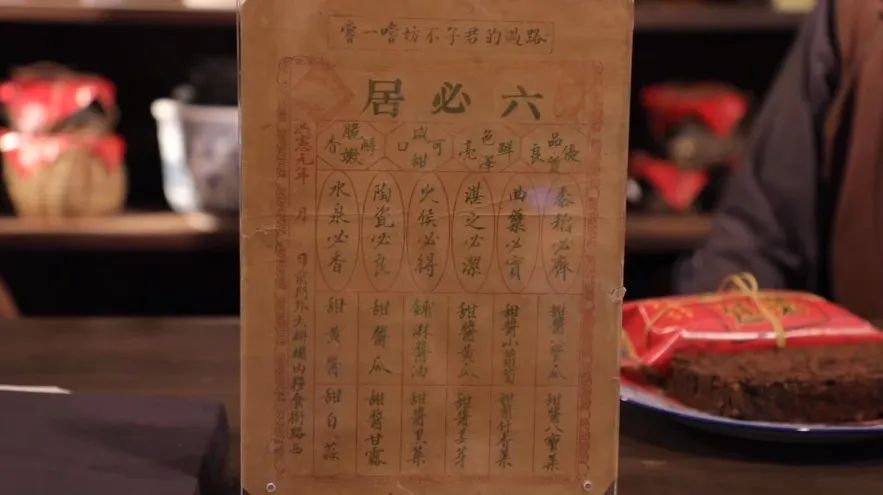 路過的君子不妨嘗一嘗
六必居
品質優良
色澤鮮亮
咸甜可口
脆嫩鮮香
黍稻必齊
曲蘗必實
湛之必潔
火候必得
陶瓷必良
水泉必香
甜醬瓜
甜醬小
甜醬黃瓜
鋪淋醬油
甜醬瓜
甜黃醬
甜醬八寶菜
甜醬什香菜
甜醬姜芽
甜醬黑菜
甜醬甘露
甜白蒜
洪憲元年 月 日 前門外大柵欄內糧食街路西